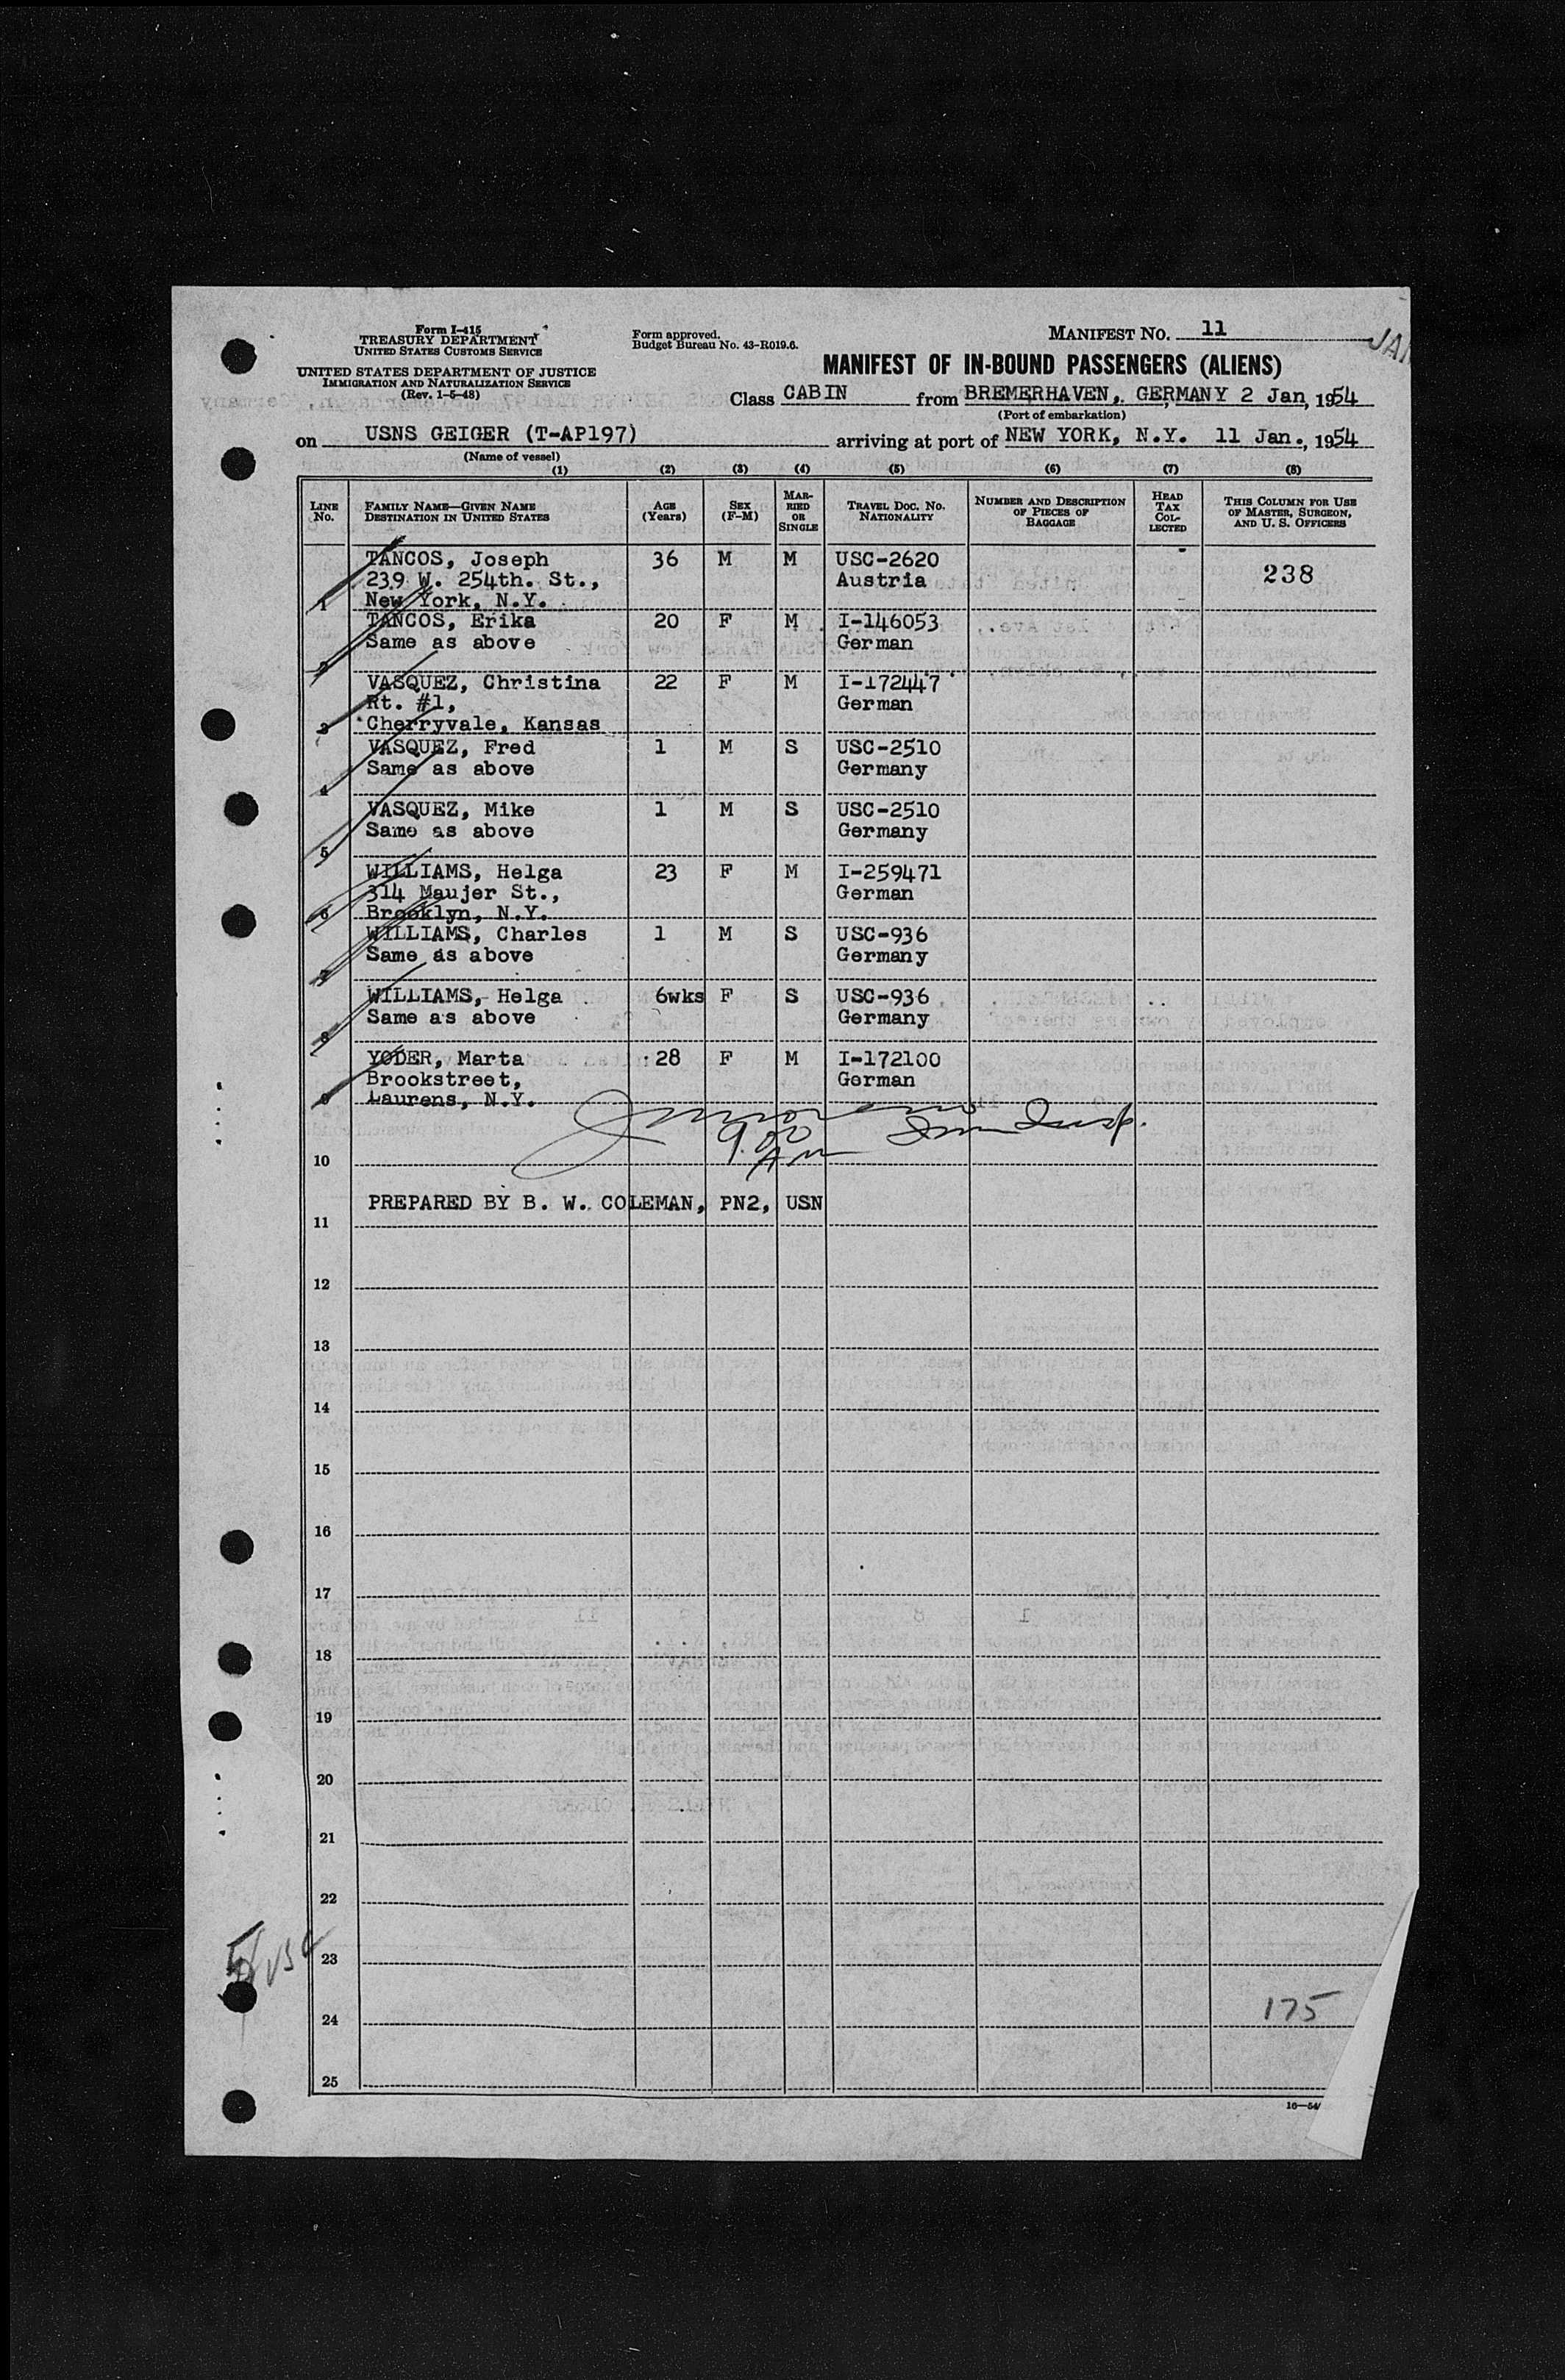 Form I-415
TREASURY DEPARTMENT
UNITED STATES CUSTOMS SERVICE
UNITED STATES DEPARTMENT OF JUSTICE
IMMIGRATION AND NATURALIZATION SERVICE
(Rev. 1-5-48)
Form approved.
Budget Bureau No. 43-R019.6.
MANIFEST NO. 11
MANIFEST OF IN-BOUND PASSENGERS (ALIENS)
Class CABIN from BREMERHAVEN, GERMANY 2 Jan, 1954
(Port of embarkation)
on USNS GEIGER (T-AP197) arriving at port of NEW YORK, N.Y. 11 Jan., 1954
(Name of vessel)
(1) (2) (3) (4) (5) (6) (7) (8)
LINE No. FAMILY NAME—GIVEN NAME DESTINATION IN UNITED STATES AGE (Years) SEX (F-M) MARRIED OR SINGLE TRAVEL DOC. NO. NATIONALITY NUMBER AND DESCRIPTION OF PIECES OF BAGGAGE HEAD TAX COLLECTED THIS COLUMN FOR USE OF MASTER, SURGEON, AND U. S. OFFICERS
TANCOS, Joseph 36 M M USC-2620
239 W. 254th. St., Austria 238
1 New York, N.Y.
TANCOS, Erika 20 F M I-146053
Same as above German
2
VASQUEZ, Christina 22 F M I-172447
Rt. #1, German
3 Cherryvale, Kansas
VASQUEZ, Fred 1 M S USC-2510
Same as above Germany
4
VASQUEZ, Mike 1 M S USC-2510
Same as above Germany
5
WILLIAMS, Helga 23 F M I-259471
314 Maujer St., German
6 Brooklyn, N.Y.
WILLIAMS, Charles 1 M S USC-936
Same as above Germany
7
WILLIAMS, Helga 6wks F S USC-936
Same as above Germany
8
YODER, Marta 28 F M I-172100
Brookstreet, German
9 Laurens, N.Y.
Imm Insp.
9.00
AM
10
PREPARED BY B. W. COLEMAN, PN2, USN
11
12
13
14
15
16
17
18
19
20
21
22
23
175
24
25